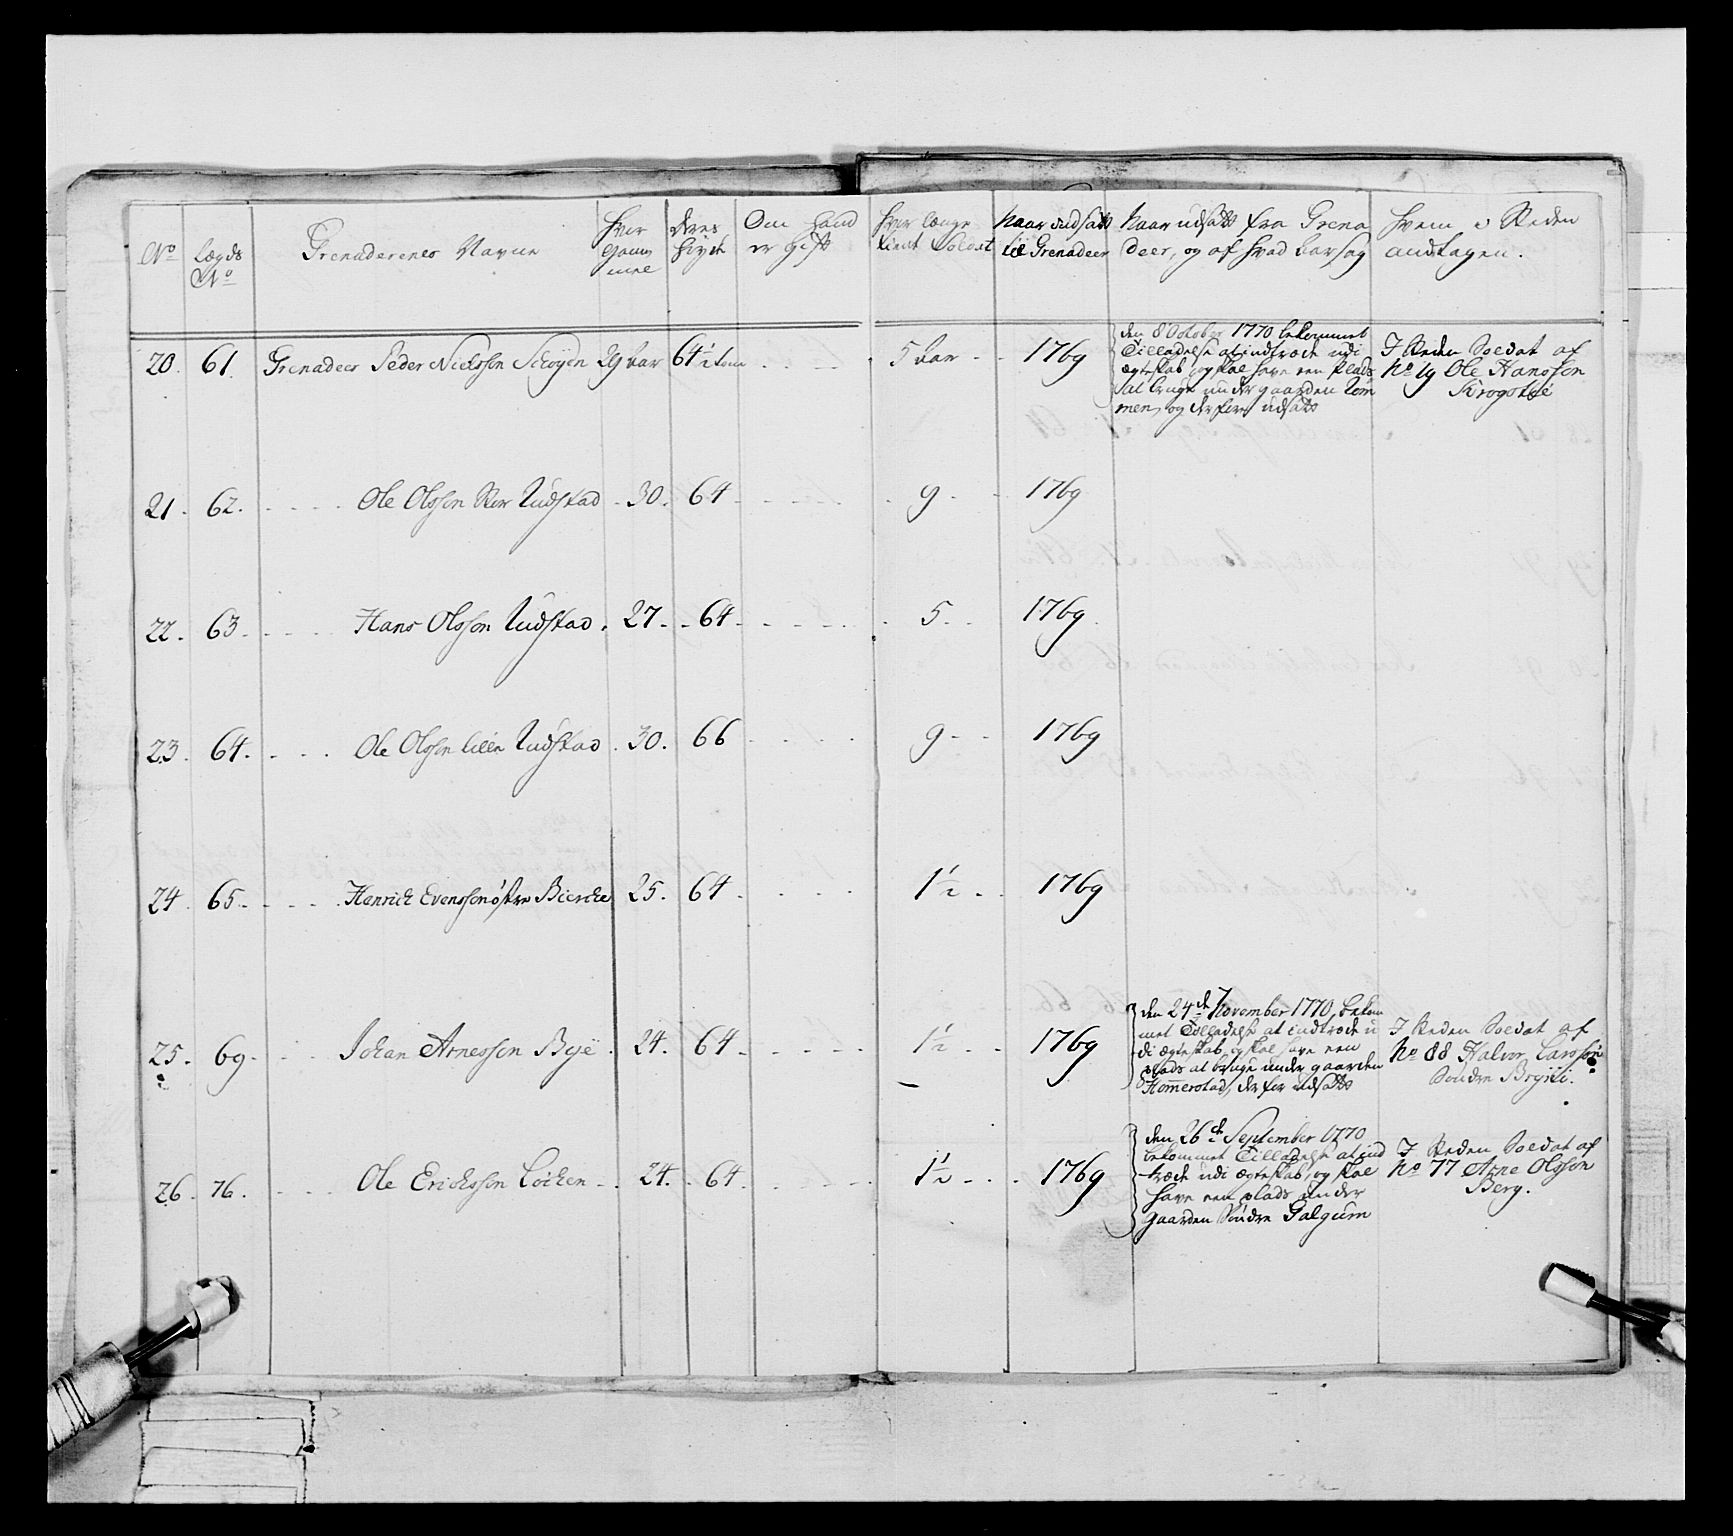 No
Lægds No
Grenaderenes Navne
Hvor gammel
deres Høyde
Om Hand er gift
Hvor længe tient Volost
Naar indsatt til Grenadeer
Naar udsatt fra Grenadeer, og af hvad aarsag
Hvem i Steden andtagen.
20. 61. Grenadeer Peder Nielsson Schøyen 29 aar 64½ tom 5 aar 1769
den 8 October 1770 bekommet
Tilladelse at indtræde udi
ægteskab, og skal have een Plads
at bruge under gaarden Lom
men, og derfore udsatt
I Steden Soldat af
No 19 Ole Hansson
Krogstie
21. 62. Ole Olsson Stor Rudstad 30. 64 9 1769
22. 63. Hans Olsson Rudstad 27. 64 5 1769
23. 64. Ole Olsson lille Rudstad 30. 66 9 1769
24. 65. Henrich Evensson østre Biercke 25. 64. 1½ 1769
25. 69. Johan Arnesson Bye 24. 64. 1½ 1769
den 24de November 1770, bekom
met Tilladelse at indtræde u
di ægteskab, og skal have een
plads at bruge under gaarden
Hommerstad, derfor udsatt
I Steden Soldat af
No 88 Halvor Larsson
Søndre Bryni.
26. 76. Ole Ericksson Løcken 24. 64. 1½ 1769
den 26de September 1770
bekommet Tilladelse at ind
træde udi ægteskab, og skal
have een plads under
gaarden Søndre Galgum
I Steden Soldat af
No 77 Arne Olsson
Berg.